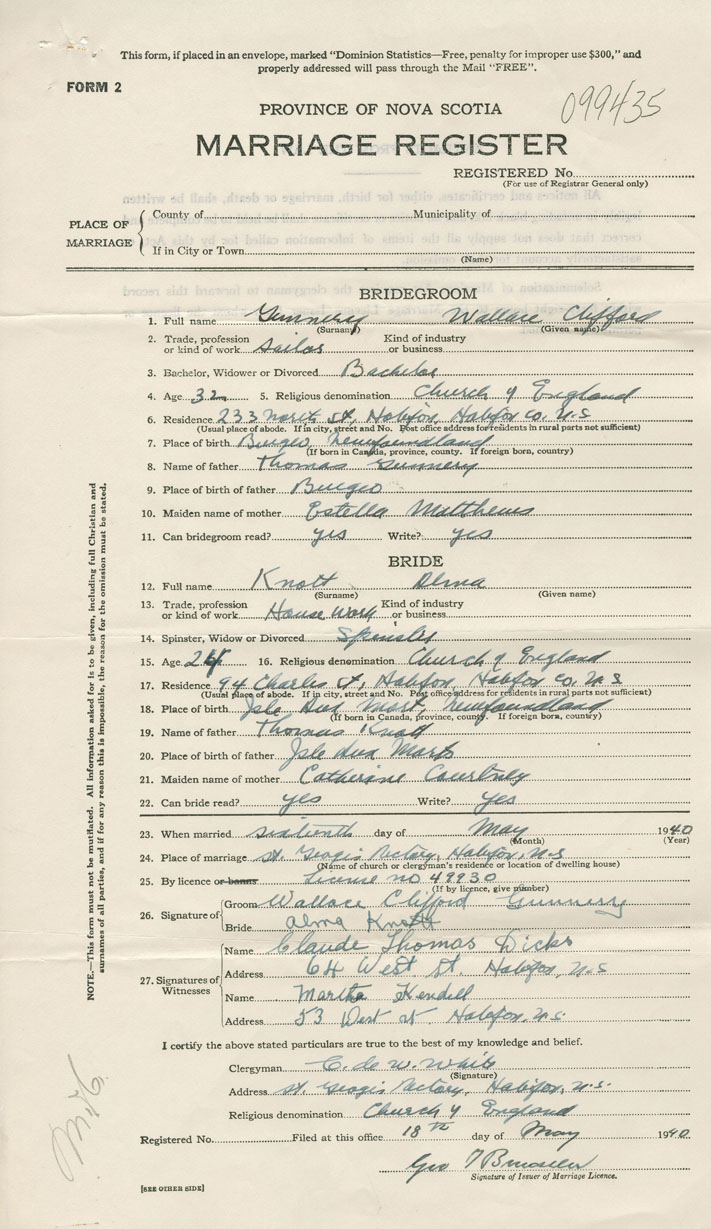 This form, if placed in an envelope, marked "Dominion Statistics—Free, penalty for improper use $300," and
properly addressed will pass through the Mail "FREE".
FORM 2
099435
PROVINCE OF NOVA SCOTIA
MARRIAGE REGISTER
REGISTERED No.
(For use of Registrar General only)
PLACE OF MARRIAGE
County of Municipality of
If in City or Town
(Name)
BRIDEGROOM
1. Full name Gunnery Wallace Clifford
(Surname) (Given name)
2. Trade, profession or kind of work Sailor Kind of industry or business
3. Bachelor, Widower or Divorced Bachelor
4. Age 32 5. Religious denomination Church of England
6. Residence 233 North St, Halifax, Halifax Co. N.S
(Usual place of abode. If in city, street and No. Post office address for residents in rural parts not sufficient)
7. Place of birth Burgeo, Newfoundland
(If born in Canada, province, county. If foreign born, country)
8. Name of father Thomas Gunnery
9. Place of birth of father Burgeo
10. Maiden name of mother Estella Matthews
11. Can bridegroom read? yes Write? yes
BRIDE
12. Full name Knott Alma
(Surname) (Given name)
13. Trade, profession or kind of work House Work Kind of industry or business
14. Spinster, Widow or Divorced Spinster
15. Age 24 16. Religious denomination Church of England
17. Residence 94 Charles St, Halifax, Halifax Co. N.S
(Usual place of abode. If in city, street and No. Post office address for residents in rural parts not sufficient)
18. Place of birth Isle Aux Mort, Newfoundland
(If born in Canada, province, county. If foreign born, country)
19. Name of father Thomas Knott
20. Place of birth of father Isle Aux Morts
21. Maiden name of mother Catherine Courtney
22. Can bride read? yes Write? yes
23. When married sixteenth day of May 1940
(Month) (Year)
24. Place of marriage St. Georg's Rectory, Halifax, N.S
(Name of church or clergyman's residence or location of dwelling house)
25. By licence or banns License no 49930
(If by licence, give number)
26. Signature of
Groom Wallace Clifford Gunnery
Bride Alma Knott
27. Signatures of Witnesses
Name Claude Thomas Dicks
Address 64 West St. Halifax, N.S
Name Martha Kendell
Address 53 West St. Halifax, N.S.
I certify the above stated particulars are true to the best of my knowledge and belief.
Clergyman C. de W. White
(Signature)
Address St. Georg's Rectory, Halifax, N.S.
Religious denomination Church of England
Registered No. Filed at this office 18th day of May 1940
Geo
Signature of Issuer of Marriage Licence.
[SEE OTHER SIDE]
NOTE.—This form must not be mutilated. All information asked for is to be given, including full Christian and
surnames of all parties, and if for any reason this is impossible, the reason for the omission must be stated.